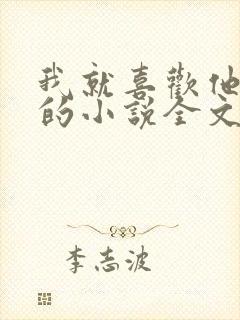 我就喜歡他
的小說全文
李志波